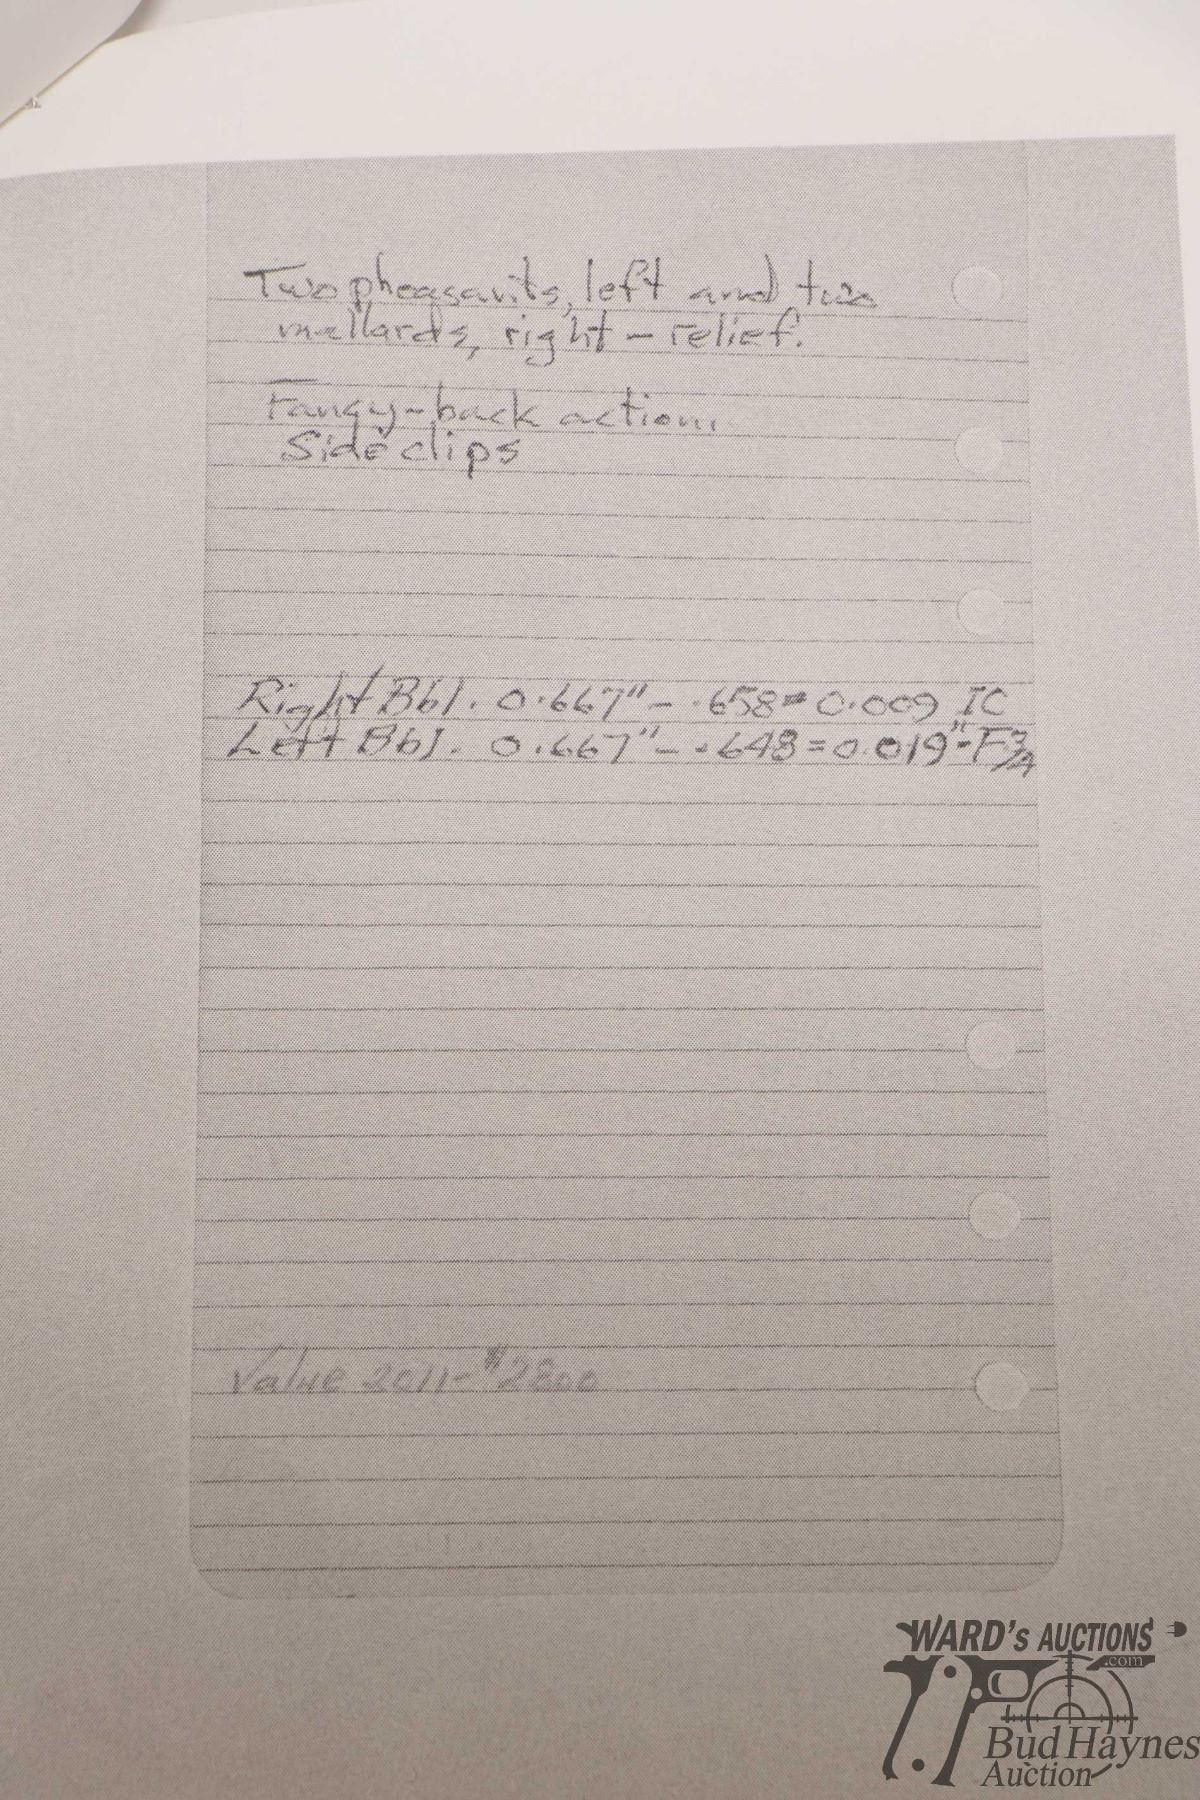 Two pheasants, left and two
mallards, right - relief.
Fancy-back action.
Side clips
Right Bbl. 0.667" - .658 = 0.009 IC
Left Bbl. 0.667" - .648 = 0.019" - F 3/4
Value 2011 - $2800
WARD's AUCTIONS
.com
Bud Haynes
Auction